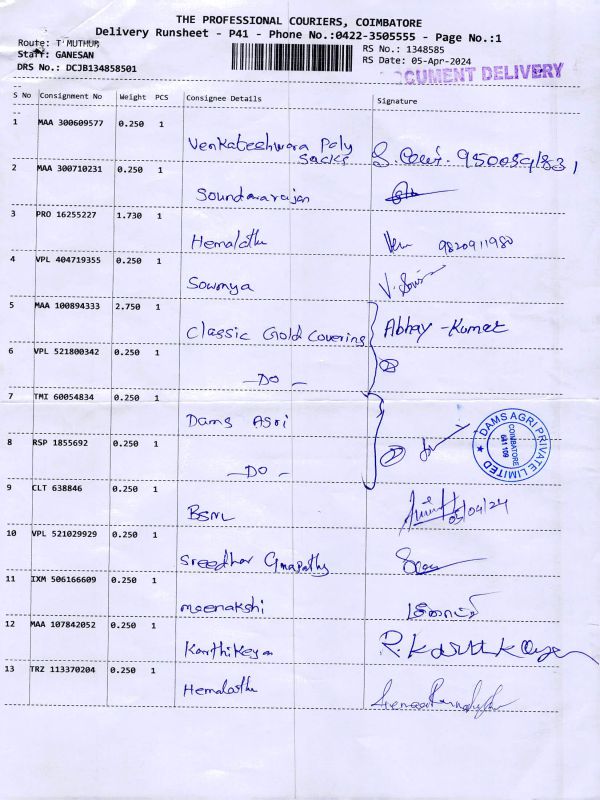 THE PROFESSIONAL COURIERS, COIMBATORE
Delivery Runsheet - P41 - Phone No.:0422-3505555 - Page No.:1
Route: T'MUTHUR RS No.: 1348585
Staff: GANESAN RS Date: 05-Apr-2024
DRS No.: DCJB134858501 DOCUMENT DELIVERY
S No Consignment No Weight PCS Consignee Details Signature
1 MAA 300609577 0.250 1
Venkateshwara Poly
Sacks
2 MAA 300710231 0.250 1
Soundararajan
3 PRO 16255227 1.730 1
Hemalatha 9820911980
4 VPL 404719355 0.250 1
Sowmya V.
5 MAA 100894333 2.750 1
Classic Gold Covering Abhay - Kumar
6 VPL 521800342 0.250 1
- DO - 2
7 TMI 60054834 0.250 1
Dams Agri
DAMS AGRI PRIVATE LIMITED
COIMBATORE
641 109
8 RSP 1855692 0.250 1
- DO - 2
9 CLT 638846 0.250 1
BSNL 05/04/24
10 VPL 521029929 0.250 1
Sreedhar Ganapathy
11 IXM 506166609 0.250 1
meenakshi
12 MAA 107842052 0.250 1
Karthikeya R. Karthikeyan
13 TRZ 113370204 0.250 1
Hemalatha